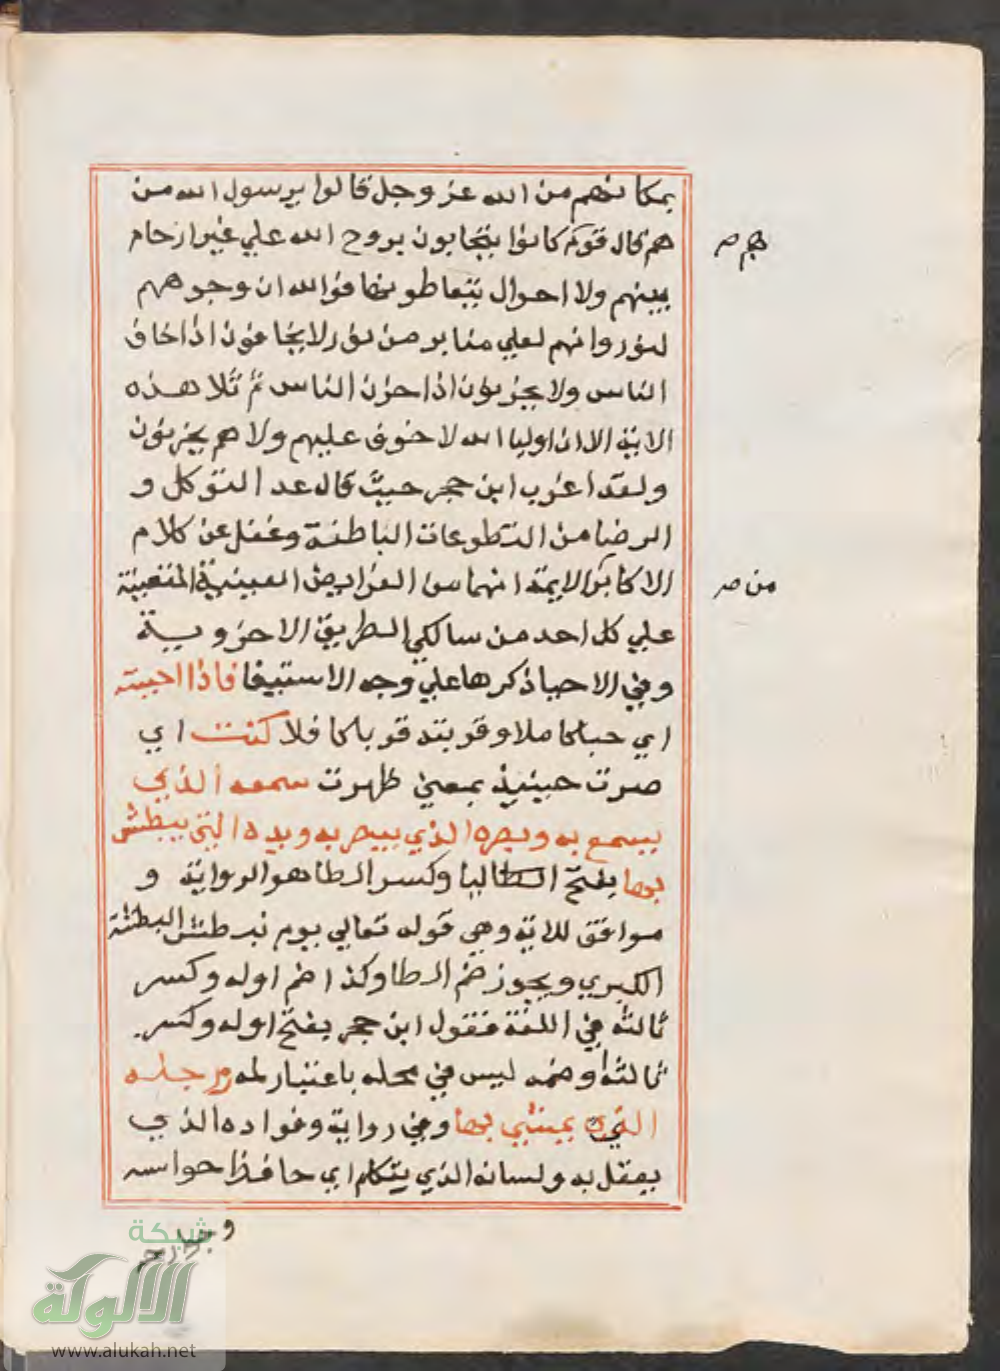 بمكانهم من الله عز وجل قالوا يرسول الله من
هم قال قوم كانوا يتحابون بروح الله علي غير ارحام
هم صر
بينهم ولا احوال يتعاطونها فوالله ان وجوههم
لنور وانهم لعلي منابر من نور لا يخافون اذا خاف
الناس ولا يحزنون اذا حزن الناس ثم تلا هذه
الاية الا ان اوليا الله لا خوف عليهم ولا هم يحزنون
ولقد اغرب ابن حجر حيث قال عد التوكل و
الرضا من التطوعات الباطنة وغفل عن كلام
الاكابر الايمة انهما من الفرايض العينية المتعينة
من صر
علي كل احد من سالكي الطريق الاخروية
وفي الاحيا ذكرها علي وجه الاستيفا فاذا احببته
اي حبا كاملا وقربته قربا كافلا كنت اي
صرت حينيذ بمعني ظهرت سمعه الذي
يسمع به وبصره الذي يبصر به ويده التي يبطش
بها بفتح اليا وكسر الطا هو الرواية و
موافق للاية وهي قوله تعالي يوم نبطش البطشة
الكبري ويجوز ضم الطا وكذا ضم اوله وكسر
ثالثه في اللغة فقول ابن حجر بفتح اوله وكسر
ثالثه أو ضمه ليس في محله باعتبار له ورجله
التي يمشي بها وفي رواية وفواده الذي
يعقل به ولسانه الذي يتكلم اي حافظا حواسه
وجوارحه
شبكة
الألوكة
www.alukah.net